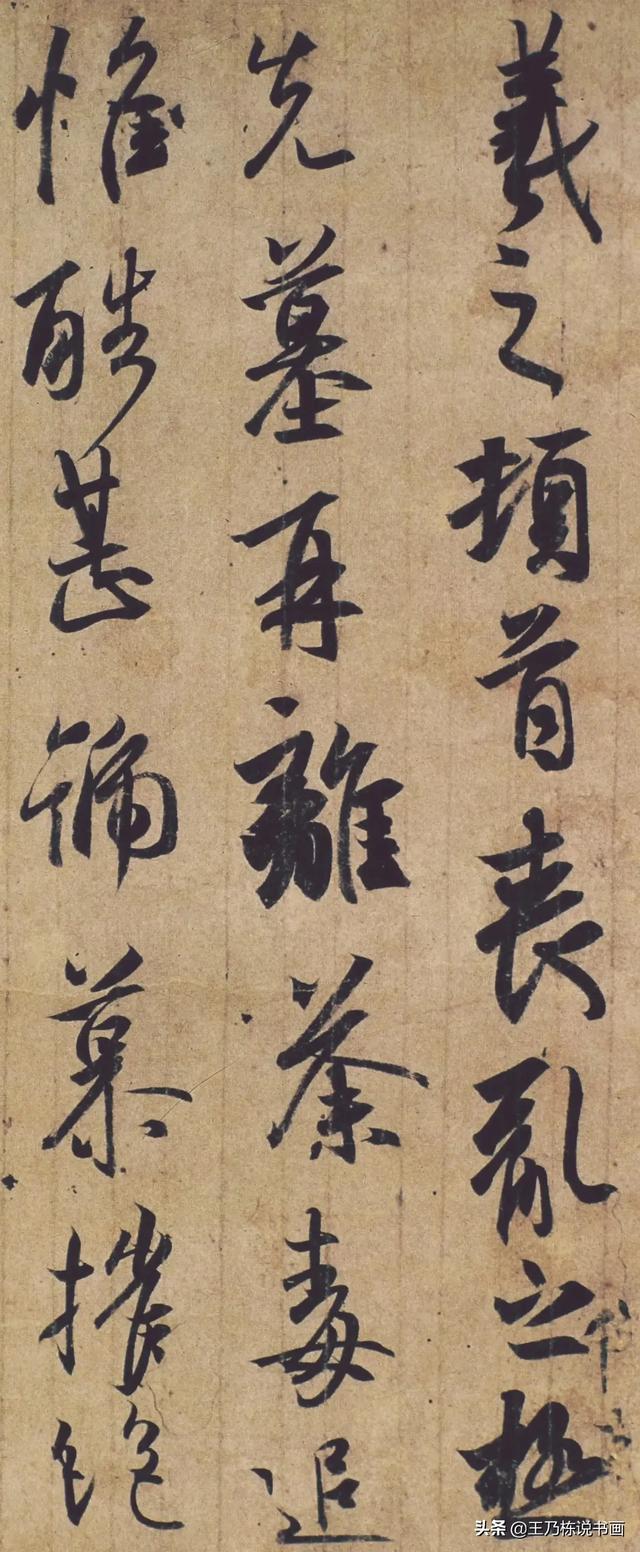 羲之頓首喪亂之極
先墓再離荼毒追
惟酷甚號慕摧絕
头条 @王乃栋说书画